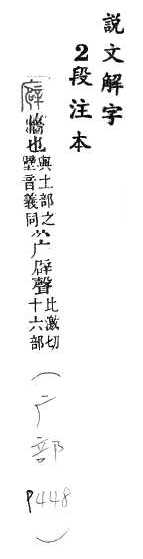 說文解字
2段注本
廦牆也與土部之壁音義同从广辟聲比激切十六部(广部 P448)